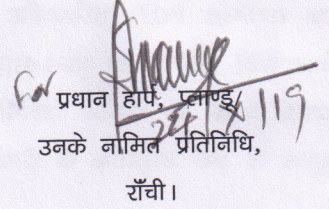 For
प्रधान हार्प, प्लाण्डू/
उनके नामित प्रतिनिधि,
राँची।